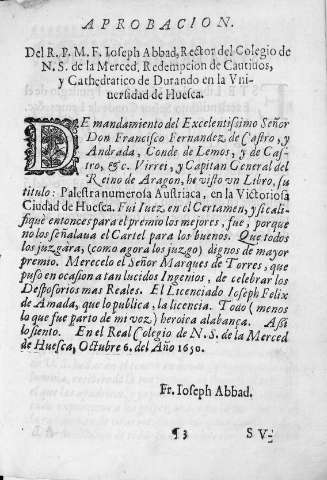 APROBACION.
Del R. P. M. F. Ioseph Abbad, Rector del Colegio de
N. S. de la Merced, Redempcion de Cautiuos,
y Cathedratico de Durando en la Vni-
uersidad de Huesca.
DE mandamiento del Excelentissimo Señor
Don Francisco Fernandez de Castro, y
Andrada, Conde de Lemos, y de Cas-
tro, &c. Virrei, y Capitan General del
Reino de Aragon, he visto vn Libro, su
titulo: Palestra numerosa Austriaca, en la Victoriosa
Ciudad de Huesca. Fui Iuez, en el Certamen, y si cali-
fiquè entonces para el premio los mejores, fue, porque
no los señalaua el Cartel para los buenos. Que todos
los juzgàra, (como agora los juzgo) dignos de mayor
premio. Merecelo el Señor Marques de Torres, que
puso en ocasion a tan lucidos Ingenios, de celebrar los
Desposorios mas Reales. El Licenciado Ioseph Felix
de Amada, que lo publica, la licencia. Todo (menos
lo que fue parto de mi voz) heroica alabança. Assi
lo siento. En el Real Colegio de N. S. de la Merced
de Huesca, Octubre 6. del Año 1650.
Fr. Ioseph Abbad.
¶3 SV-